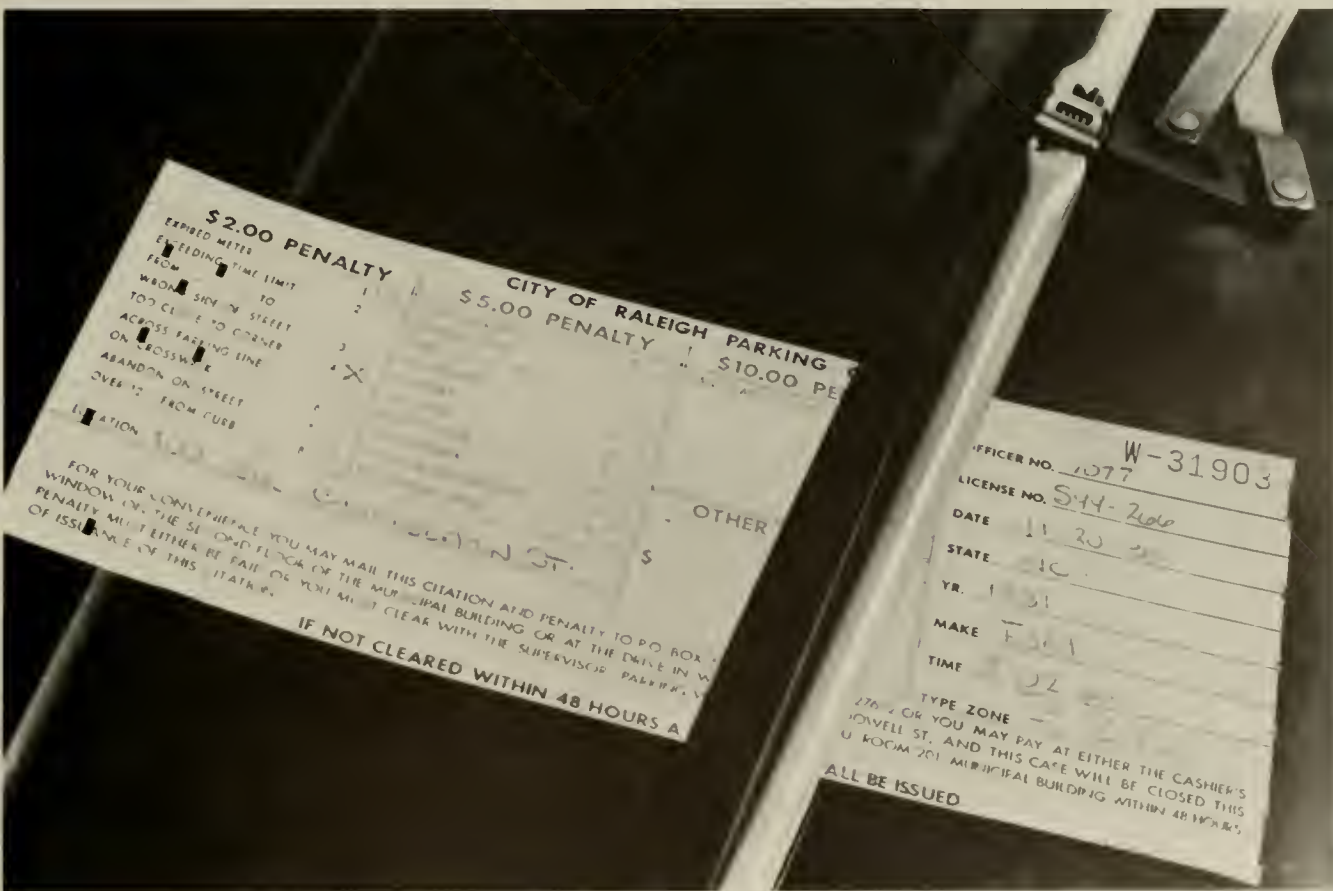 CITY OF RALEIGH PARKING
$2.00 PENALTY
$5.00 PENALTY
$10.00 PE
EXPIRED METER 1
EXCEEDING TIME LIMIT 2
FROM TO
WRONG SIDE OF STREET 3
TOO CLOSE TO CORNER
ACROSS PARKING LINE X
ON CROSSWALK
ABANDON ON STREET
OVER 12 FROM CURB
LOCATION ST.
OTHER
$
FOR YOUR CONVENIENCE YOU MAY MAIL THIS CITATION AND PENALTY TO PO BOX
WINDOW OF THE SECOND FLOOR OF THE MUNICIPAL BUILDING OR AT THE DRIVE IN W
PENALTY MUST EITHER BE PAID OR YOU MUST CLEAR WITH THE SUPERVISOR PARKING
OF ISSUANCE OF THIS CITATION.
IF NOT CLEARED WITHIN 48 HOURS A
W-31903
OFFICER NO. 1077
LICENSE NO.
DATE 11 20
STATE
YR.
MAKE Ford
TIME
TYPE ZONE
OR YOU MAY PAY AT EITHER THE CASHIER'S
DOWELL ST. AND THIS CASE WILL BE CLOSED THIS
ROOM 201 MUNICIPAL BUILDING WITHIN 48 HOURS
ALL BE ISSUED